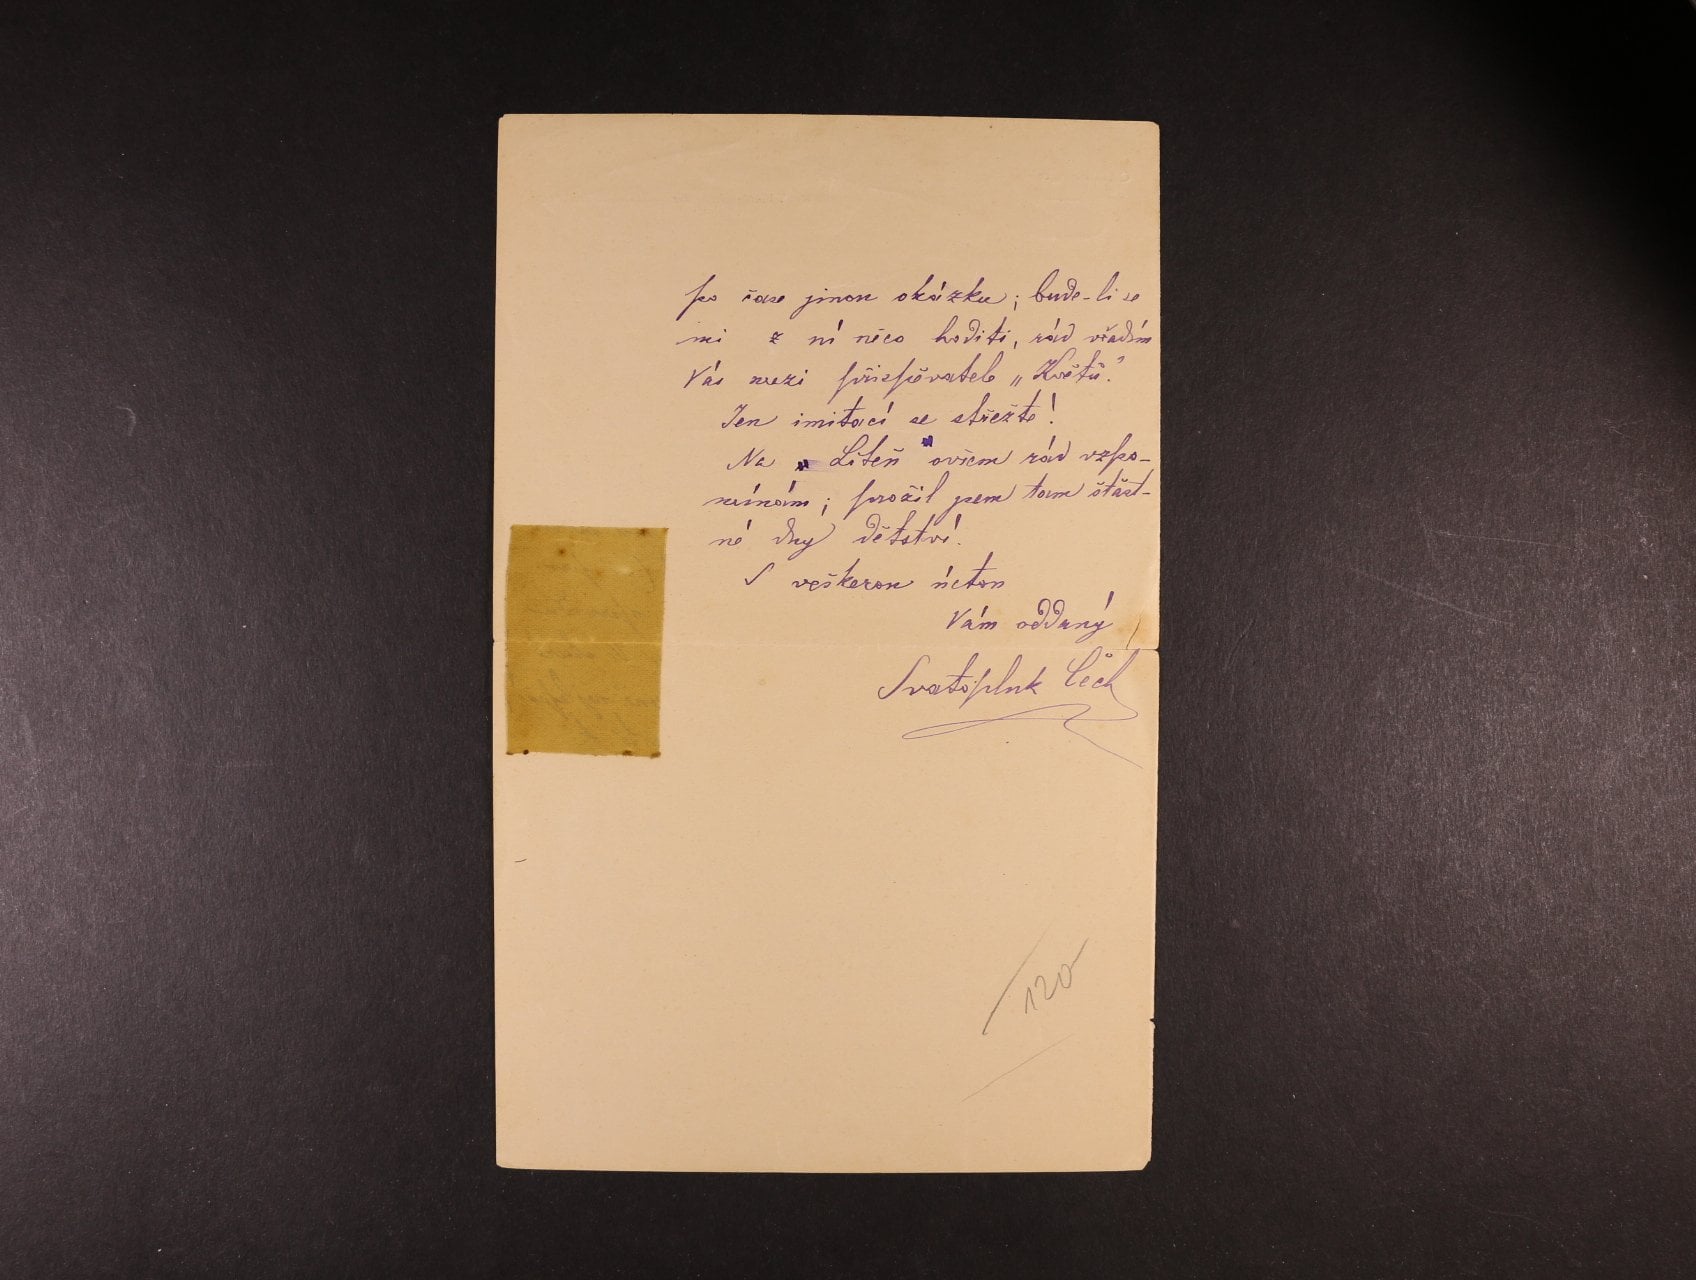 po čase jinou okázku; bude-li se
mi z ní něco hoditi, rád vřadím
Vás mezi přispěvatele „Květů".
Jen imitací se střežte!
Na „Liteň" ovšem rád vzpo-
mínám; prožil jsem tam šťast-
né dny dětství.
S veškerou úctou
Vám oddaný
Svatopluk Čech
120